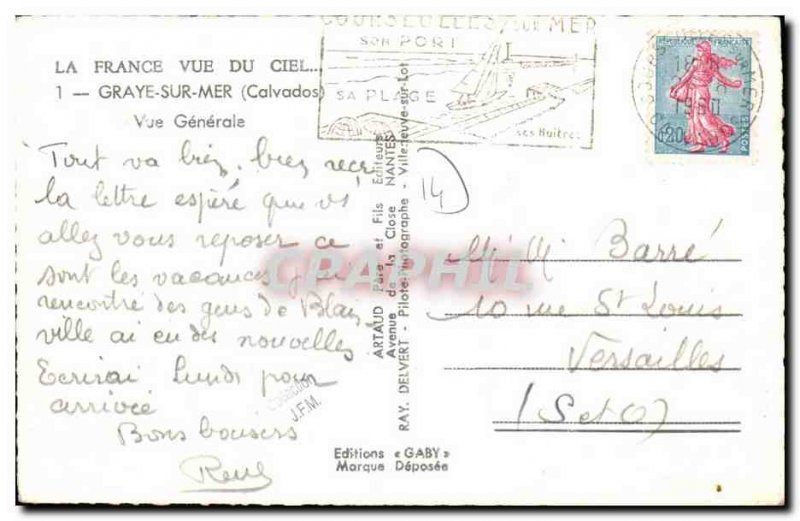 COURSEULLES/SUR MER
SON PORT
SA PLAGE
ses Huîtres
LA FRANCE VUE DU CIEL...
1 — GRAYE-SUR-MER (Calvados)
Vue Générale
Tout va bien, bien reçu
la lettre espéré que vs
allez vous reposer ce
sont les vacances j'ai
rencontré des gens de Blain
ville ai eu des nouvelles
Ecrirai Lundi pour
arrivée
Bons baisers
René
ARTAUD Père et Fils Editeurs
Avenue de la Close NANTES
RAY. DELVERT - Pilote-Photographe - Villeneuve-sur-Lot
14
Barré
10 rue St Louis
Versailles
(S et O)
Editions « GABY »
Marque Déposée
Collection
J.F.M.
CPAPHIL
REPUBLIQUE FRANÇAISE
0,20
POSTES
1960